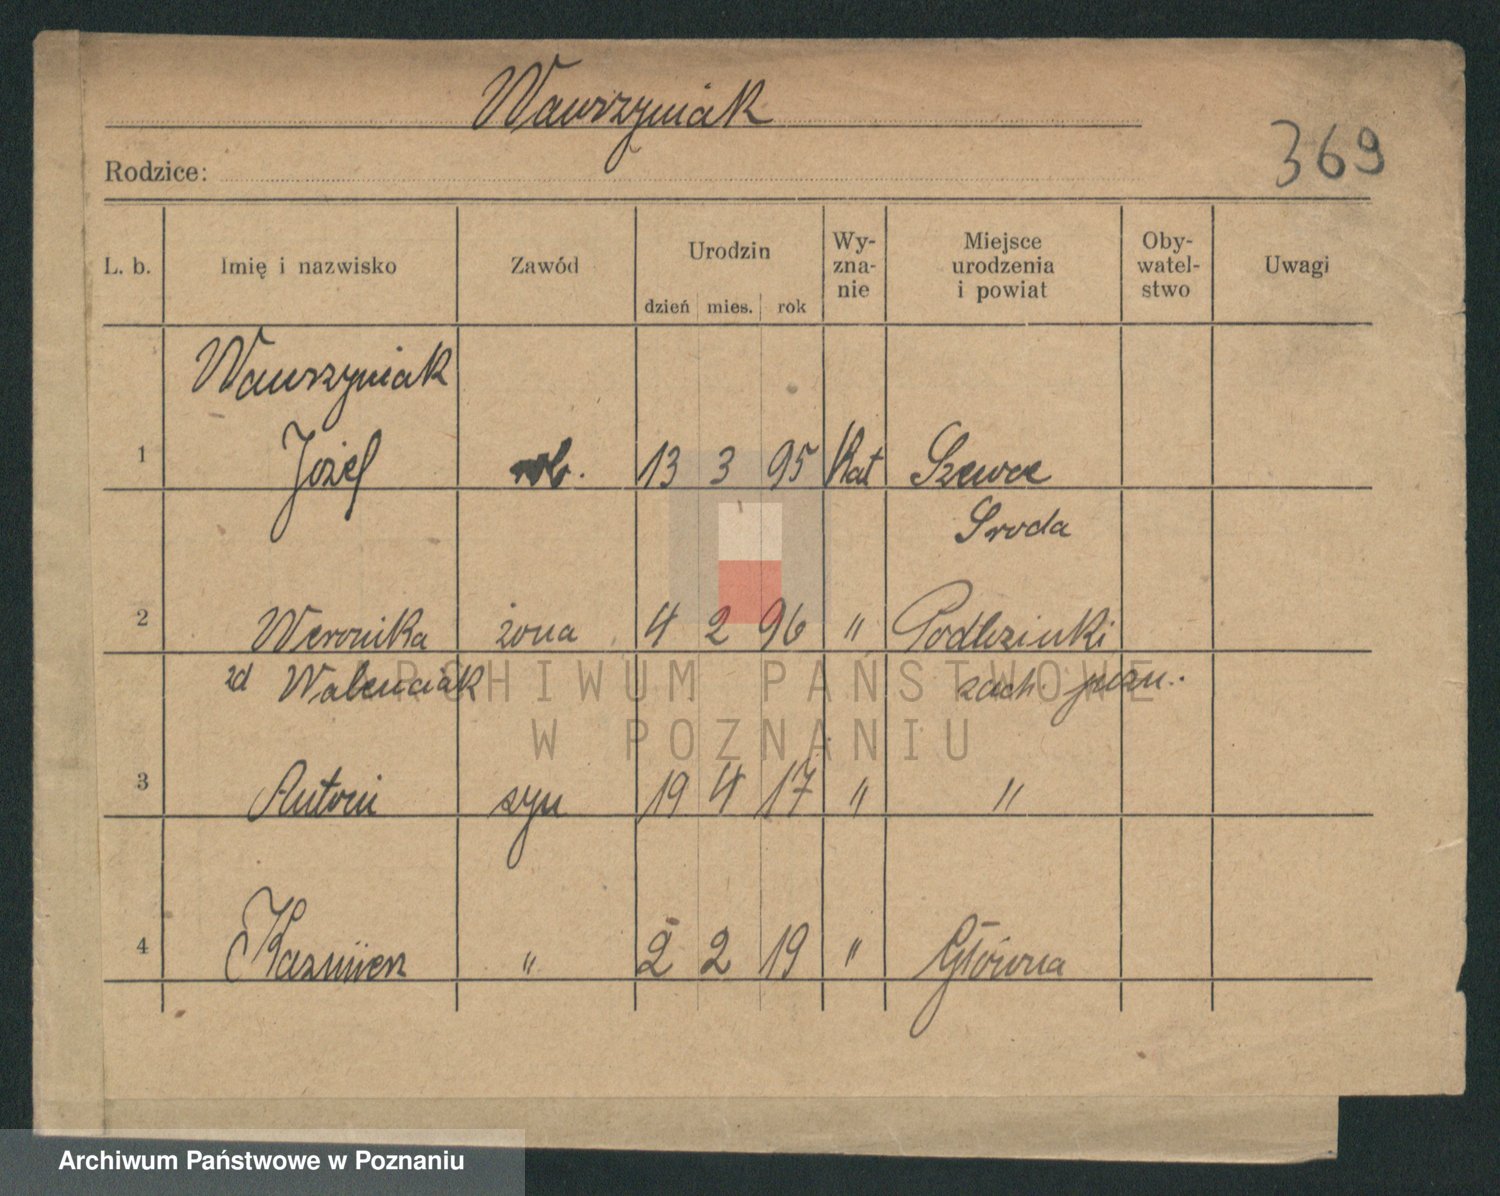 Wawrzyniak
369
Rodzice:
L. b. Imię i nazwisko Zawód Urodzin dzień mies. rok Wy-zna-nie Miejsce urodzenia i powiat Oby-watel-stwo Uwagi
Wawrzyniak
1 Józef rob. 13 3 95 Kat Szewce
Sroda
2 Weronika żona 4 2 96 "
zd Walenciak zach. pozn.
3 Antoni syn 19 4 17 " "
4 Kazmierz " 2 2 19 " Główna
ARCHIWUM PAŃSTWOWE
W POZNANIU
Archiwum Państwowe w Poznaniu